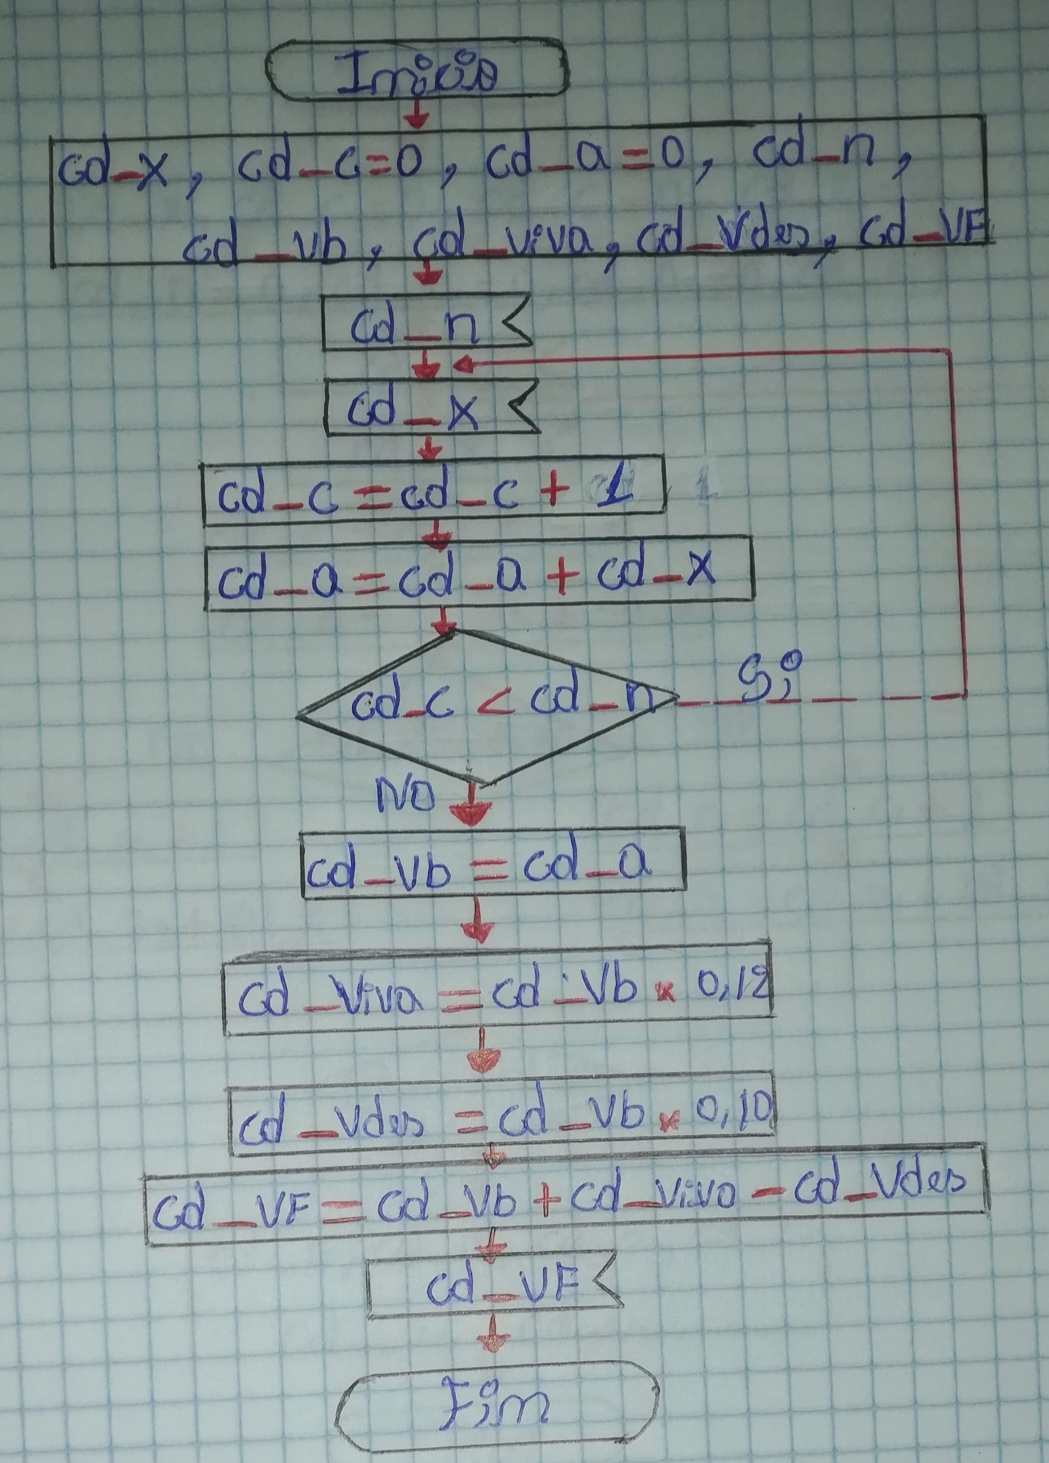 Inicio
cd_x, cd_c=0, cd_a=0, cd_n,
cd_vb, cd_viva, cd_Vdes, cd_VF
cd_n
cd_x
cd_c=cd_c + 1
cd_a=cd_a + cd_x
cd_c < cd_n
Si
NO
cd_vb = cd_a
cd_viva = cd_Vb * 0,12
cd_Vdes = cd_Vb * 0,10
cd_VF = cd_Vb + cd_viva - cd_Vdes
cd_VF
Fin